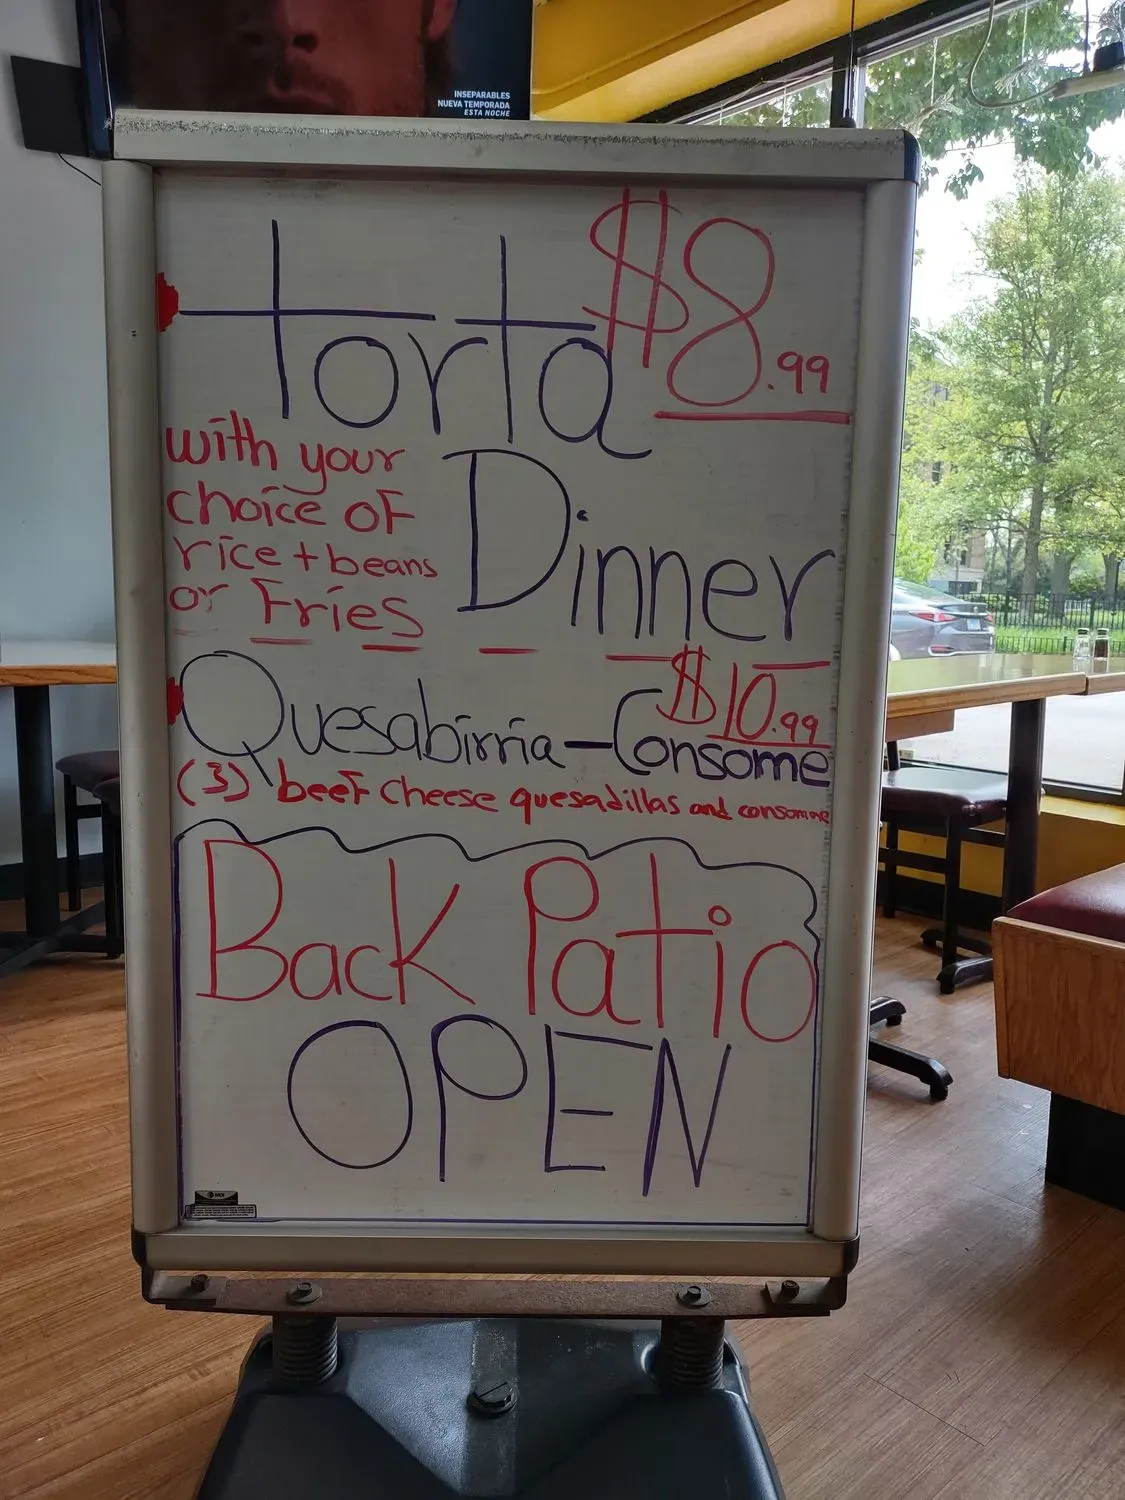 INSEPARABLES
NUEVA TEMPORADA
ESTA NOCHE
torta $8.99
with your
choice of
rice + beans
or Fries
Dinner
Quesabirria - Consome $10.99
(3) beef cheese quesadillas and consomme
Back Patio
OPEN